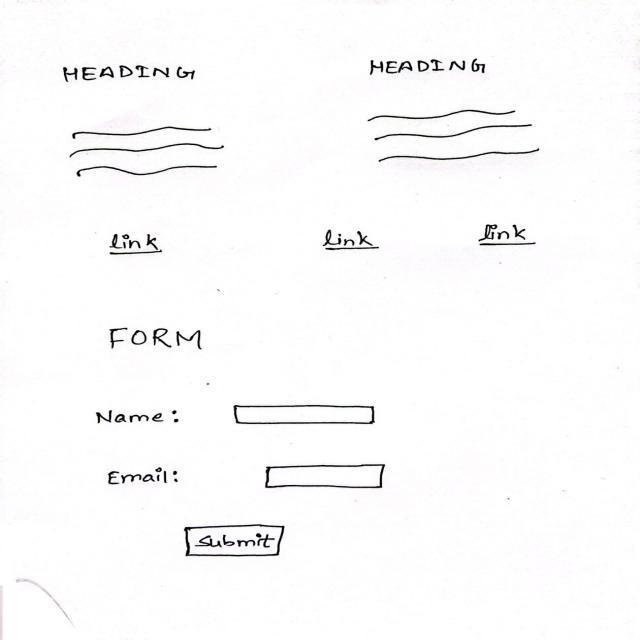 HEADING HEADING
link link link
FORM
Name:
Email:
Submit